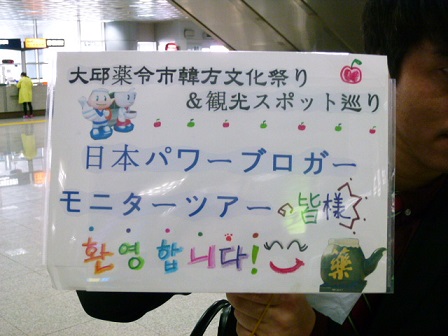 大邱薬令市韓方文化祭り
＆観光スポット巡り
日本パワーブロガー
モニターツアーの皆様
환영합니다!
薬